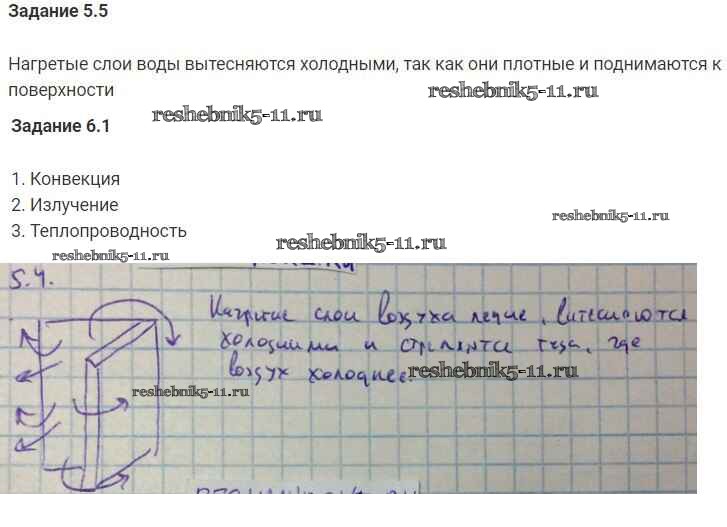 Задание 5.5
Нагретые слои воды вытесняются холодными, так как они плотные и поднимаются к
поверхности
reshebnik5-11.ru
reshebnik5-11.ru
Задание 6.1
1. Конвекция
2. Излучение
reshebnik5-11.ru
3. Теплопроводность
reshebnik5-11.ru
reshebnik5-11.ru
5.4.
Нагретые слои воздуха легче, вытесняются
холодными и стремятся туда, где
воздух холоднее.
reshebnik5-11.ru
reshebnik5-11.ru